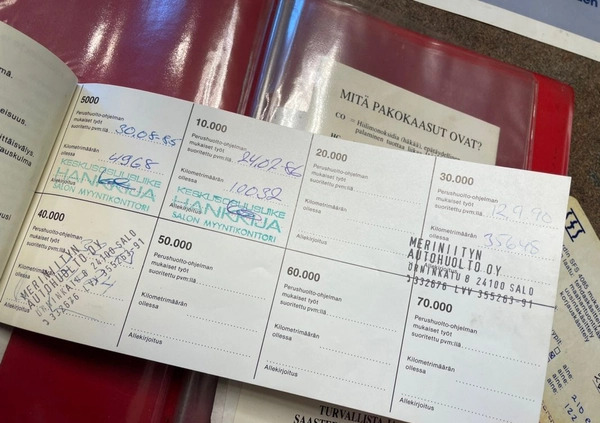 MITÄ PAKOKAASUT OVAT?
5000
Perushuolto-ohjelman
mukaiset työt
suoritettu pvm:llä 30.08-85
Kilometrimäärän
ollessa 4968
KESKUSOSUUSLIIKE
HANKKIJA
SALON MYYNTIKONTTORI
10.000
Perushuolto-ohjelman
mukaiset työt
suoritettu pvm:llä 24.07-86
Kilometrimäärän
ollessa 10082
KESKUSOSUUSLIIKE
HANKKIJA
Allekirjoitus
SALON MYYNTIKONTTORI
20.000
Perushuolto-ohjelman
mukaiset työt
suoritettu pvm:llä
Kilometrimäärän
ollessa
Allekirjoitus
30.000
Perushuolto-ohjelman
mukaiset työt
suoritettu pvm:llä 12.9.90
Kilometrimäärän
ollessa 35648
MERINIITYN
AUTOHUOLTO OY
ORNINKATU 8 24100 SALO
2 332676 LVV 355263-91
40.000
Perushuolto-ohjelman
mukaiset työt
suoritettu pvm:llä
Kilometrimäärän
ollessa
Allekirjoitus
MERINIITYN
AUTOHUOLTO OY
ORNINKATU 8 24100 SALO
2 332676 LVV 355263-91
50.000
Perushuolto-ohjelman
mukaiset työt
suoritettu pvm:llä
Kilometrimäärän
ollessa
Allekirjoitus
60.000
Perushuolto-ohjelman
mukaiset työt
suoritettu pvm:llä
Kilometrimäärän
ollessa
Allekirjoitus
70.000
Perushuolto-ohjelman
mukaiset työt
suoritettu pvm:llä
Kilometrimäärän
ollessa
Allekirjoitus